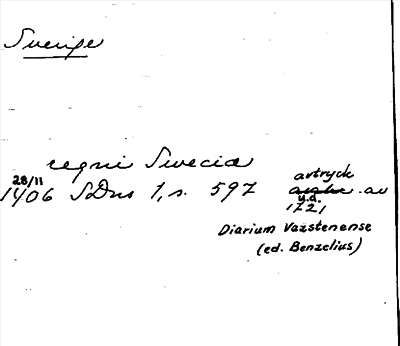 Sverige
regni Swecia
28/11
1406 SDns 1, s. 597
avtryck
av
u.å.
1721
Diarium Vazstenense
(ed. Benzelius)